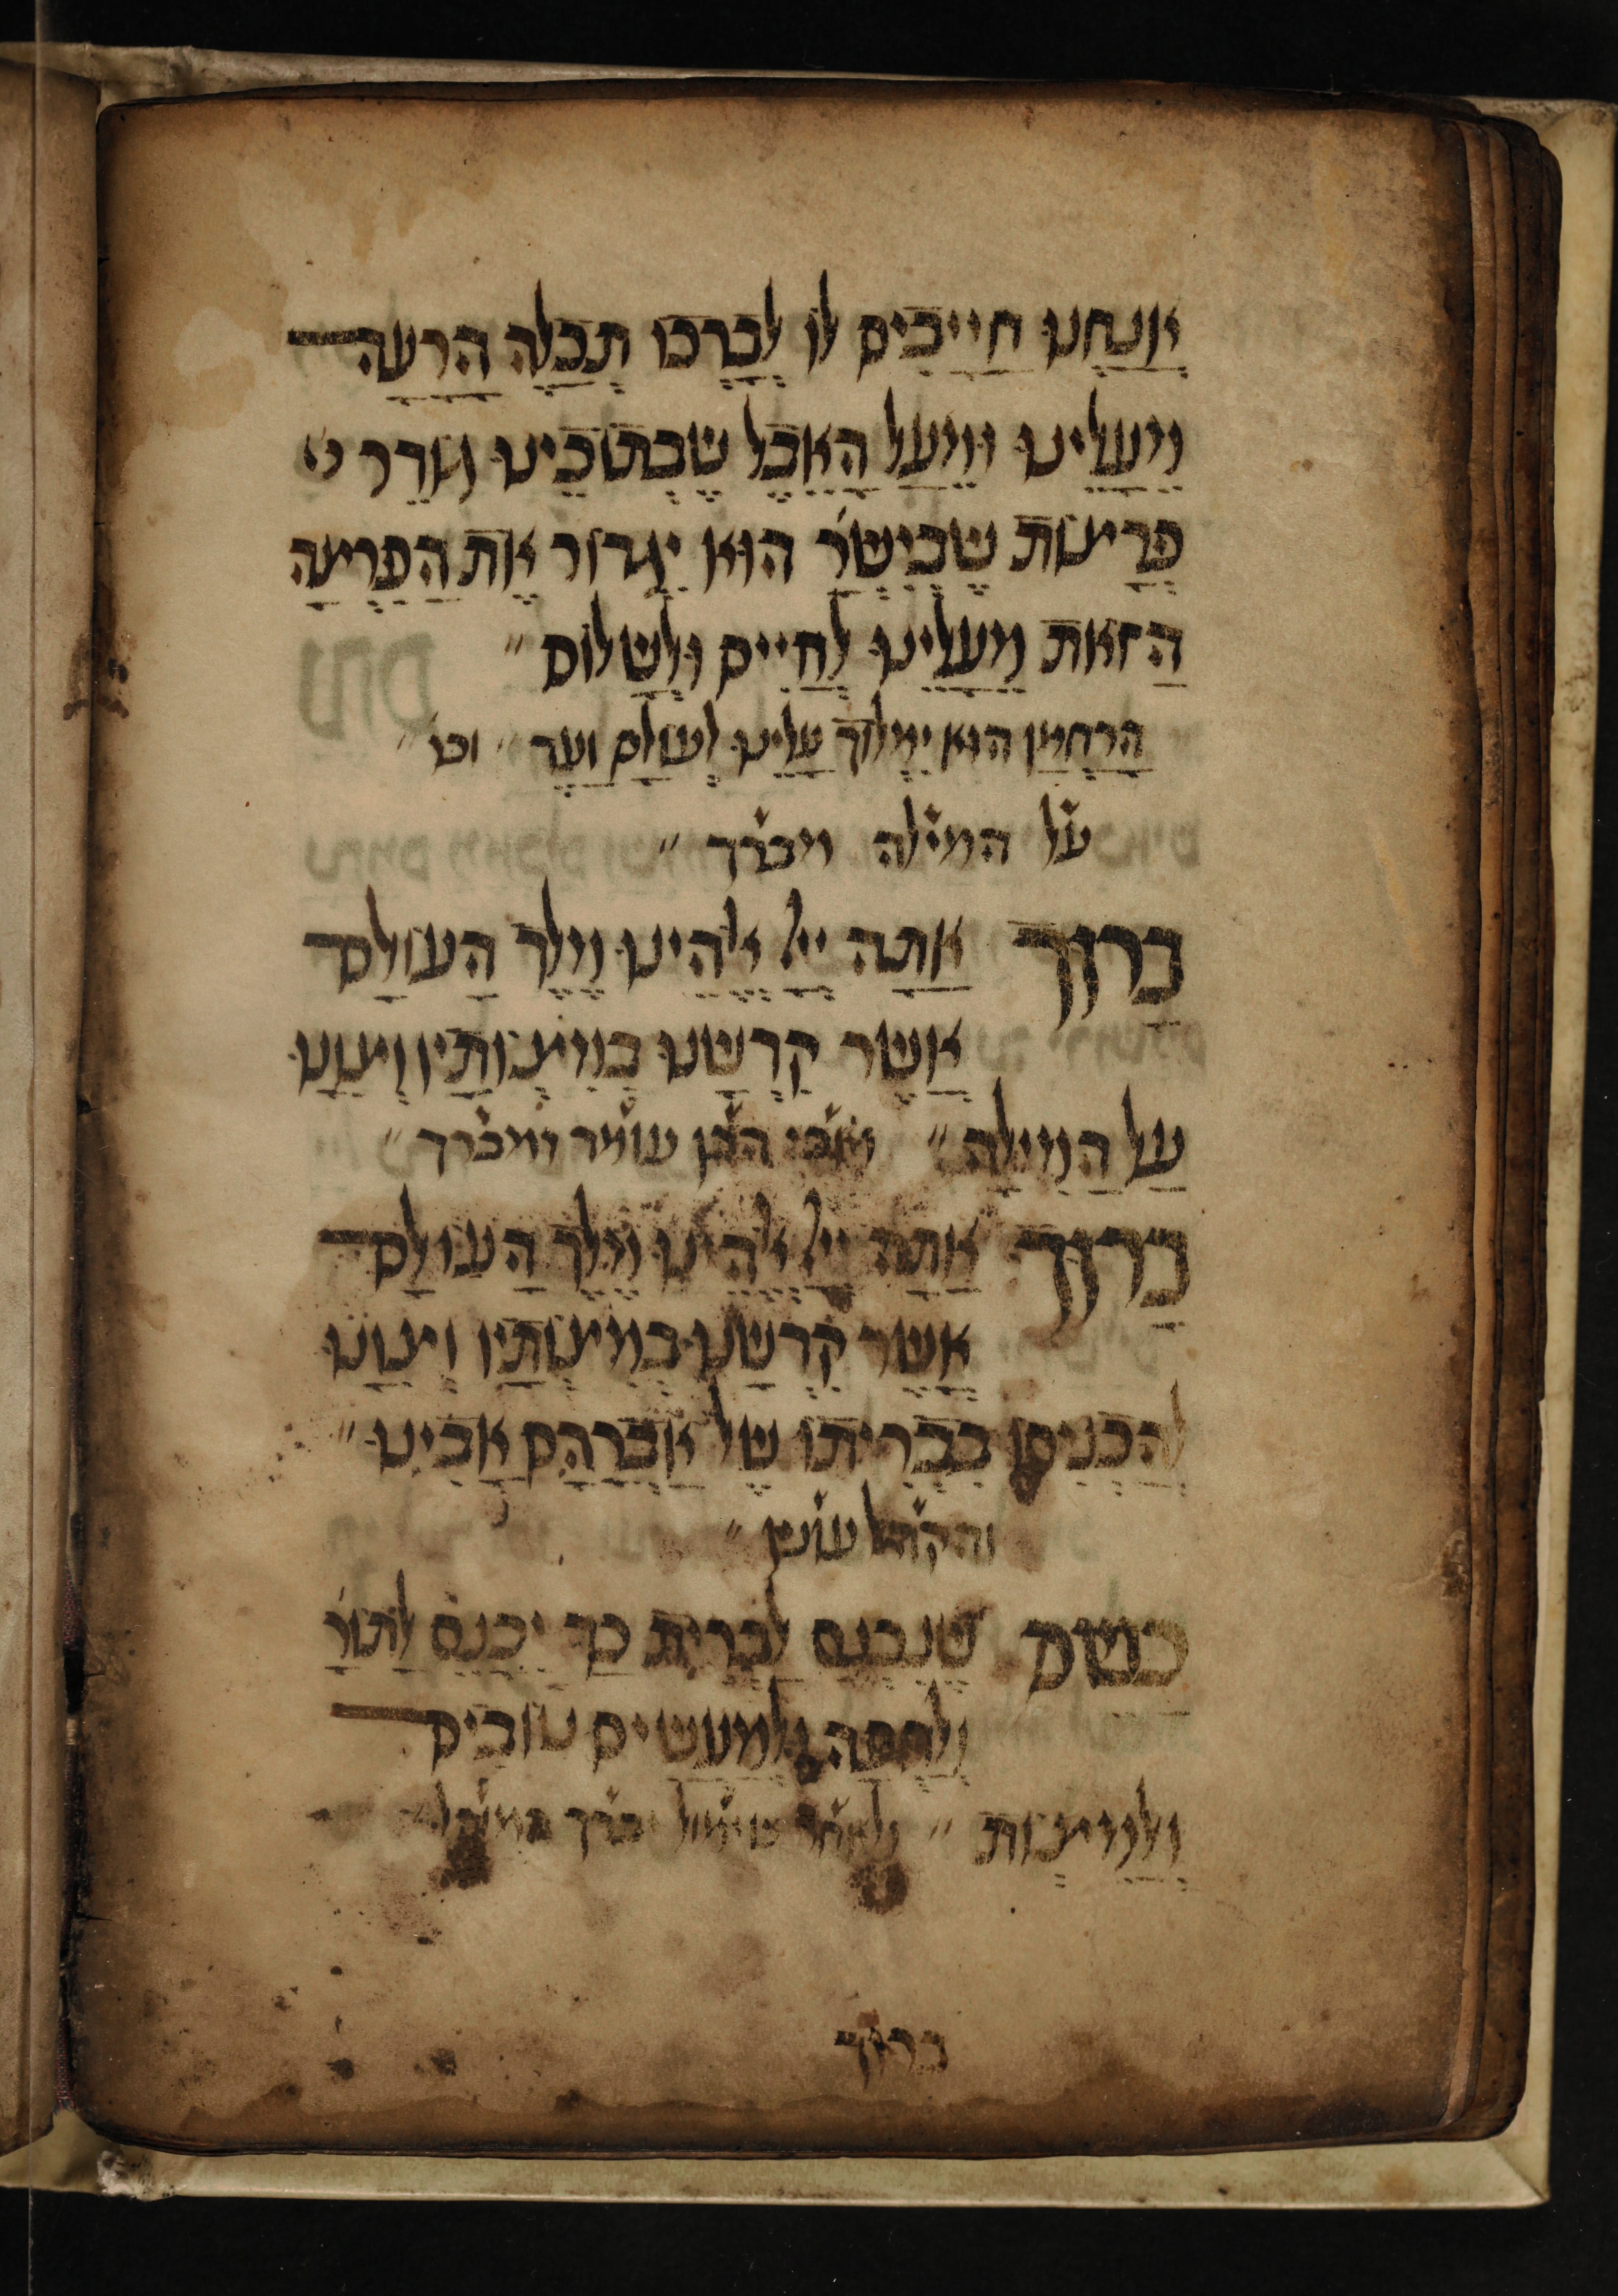 אֲנַחְנוּ חַיָיבִים לוֹ לְבָרְכוֹ תְכַלֶה הָרָעָה
מֵעָלֵינוּ וּמֵעַל הָאֵבֶל שֶבְתוֹכֵינוּ גוֹדֵר
פְרָצוֹת שֶבְיִשְרָ׳ הוּא יִגְדוֹר אֶת הַפִרְצָה
הַזאת מֵעָלֵינוּ לְחַיִים וּלְשָלוֹם ״
הָרַחֲמָן הוּא יִמְלוֹךְ עָלֵינוּ לְעוֹלָם וָעֶד ״ וכו׳ ״
על המילה מברך ״
בָרוּךְ אַתָה יְיָ אֱלֹהֵינוּ מֶלֶךְ הָעוֹלָם
אֲשֶר קִדְשָנוּ בְמִצְוֹתָיו וְצִוָנוּ
עַל הַמִילָה ״ אבי הבן עומד ומברך ״
בָרוּךְ אַתָה יְיָ אֱלֹהֵינוּ מֶלֶךְ הָעוֹלָם
אֲשֶר קִדְשָנוּ בְמִצְוֹתָיו וְצִוָנוּ
לְהַכְנִיסוֹ בִבְרִיתוֹ שֶל אַבְרָהָם אָבִינוּ ״
והקהל עונין ״
כשם שֶנִכְנַס לַבְרִית כַךְ יִכָנֵס לַתוֹרָ׳
וּלְחֻפָה וּלְמַעֲשִים טוֹבִים
וּלְמִצְוֹת ״ ולאחר שימול יברך
ברוך